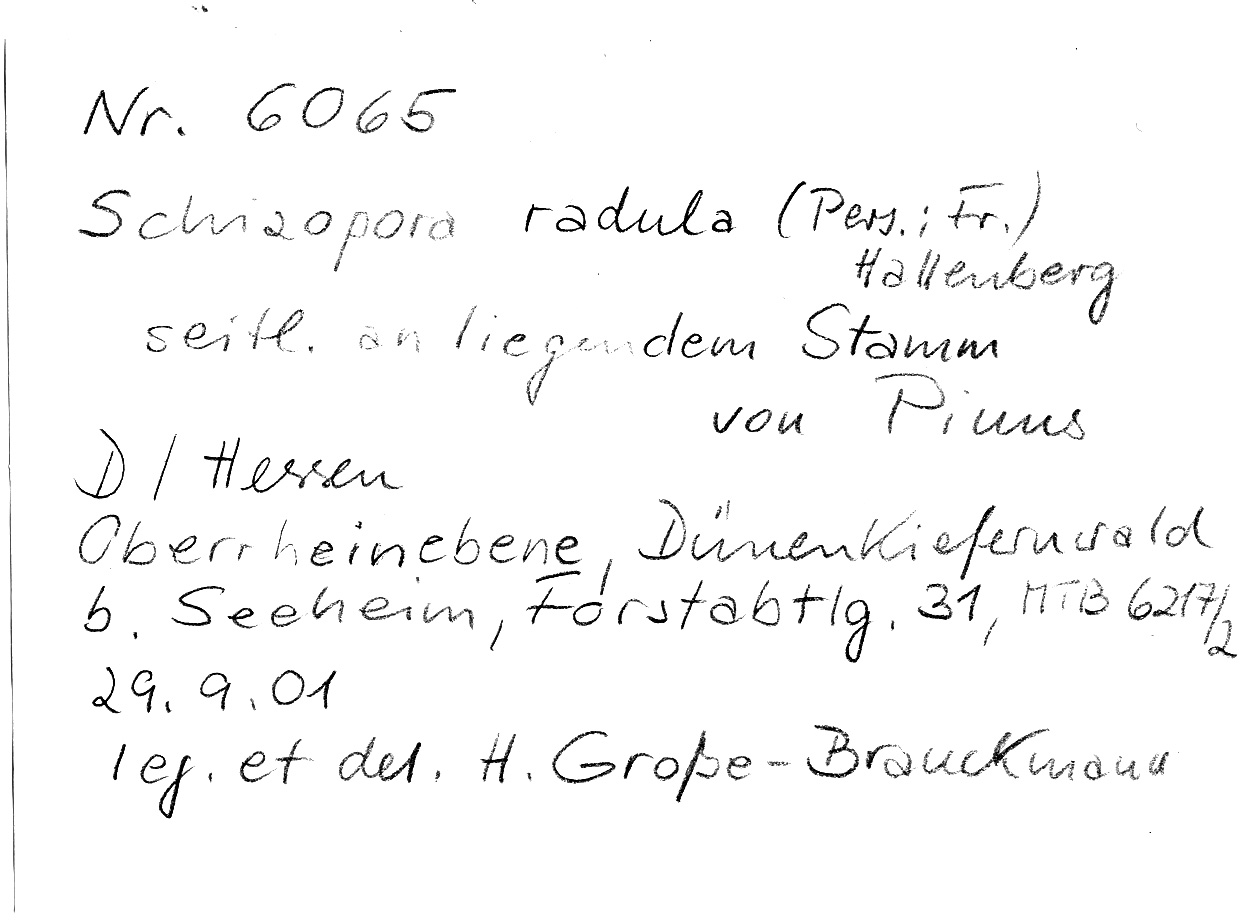 Nr. 6065
Schizopora radula (Pers.: Fr.)
Hallenberg
seitl. an liegendem Stamm
von Pinus
D / Hessen
Oberrheinebene, Dünenkiefernwald
b. Seeheim, Forstabtlg. 31, MTB 6217/2
29. 9. 01
leg. et det. H. Große-Brauckmann